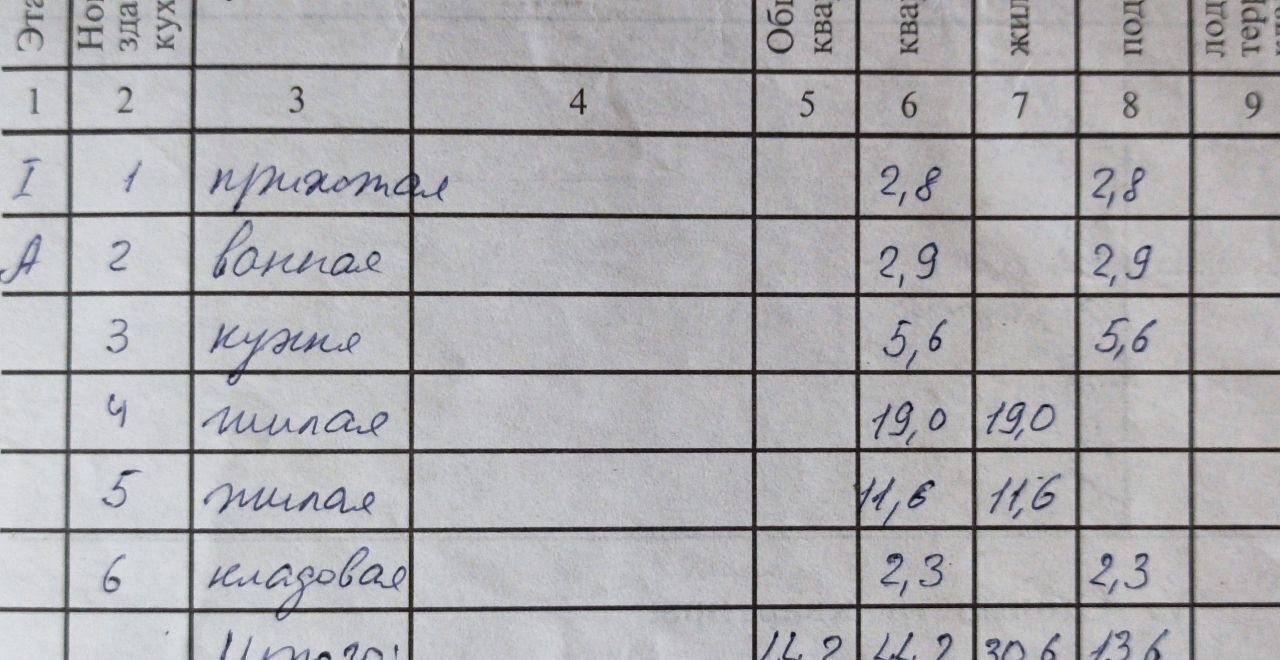 Эта Но зда кух Общ квар квар жил под лод терр
1 2 3 4 5 6 7 8 9
I 1 прихожая 2,8 2,8
А 2 ванная 2,9 2,9
3 кухня 5,6 5,6
4 жилая 19,0 19,0
5 жилая 11,6 11,6
6 кладовая 2,3 2,3
Итого: 44,2 44,2 30,6 13,6